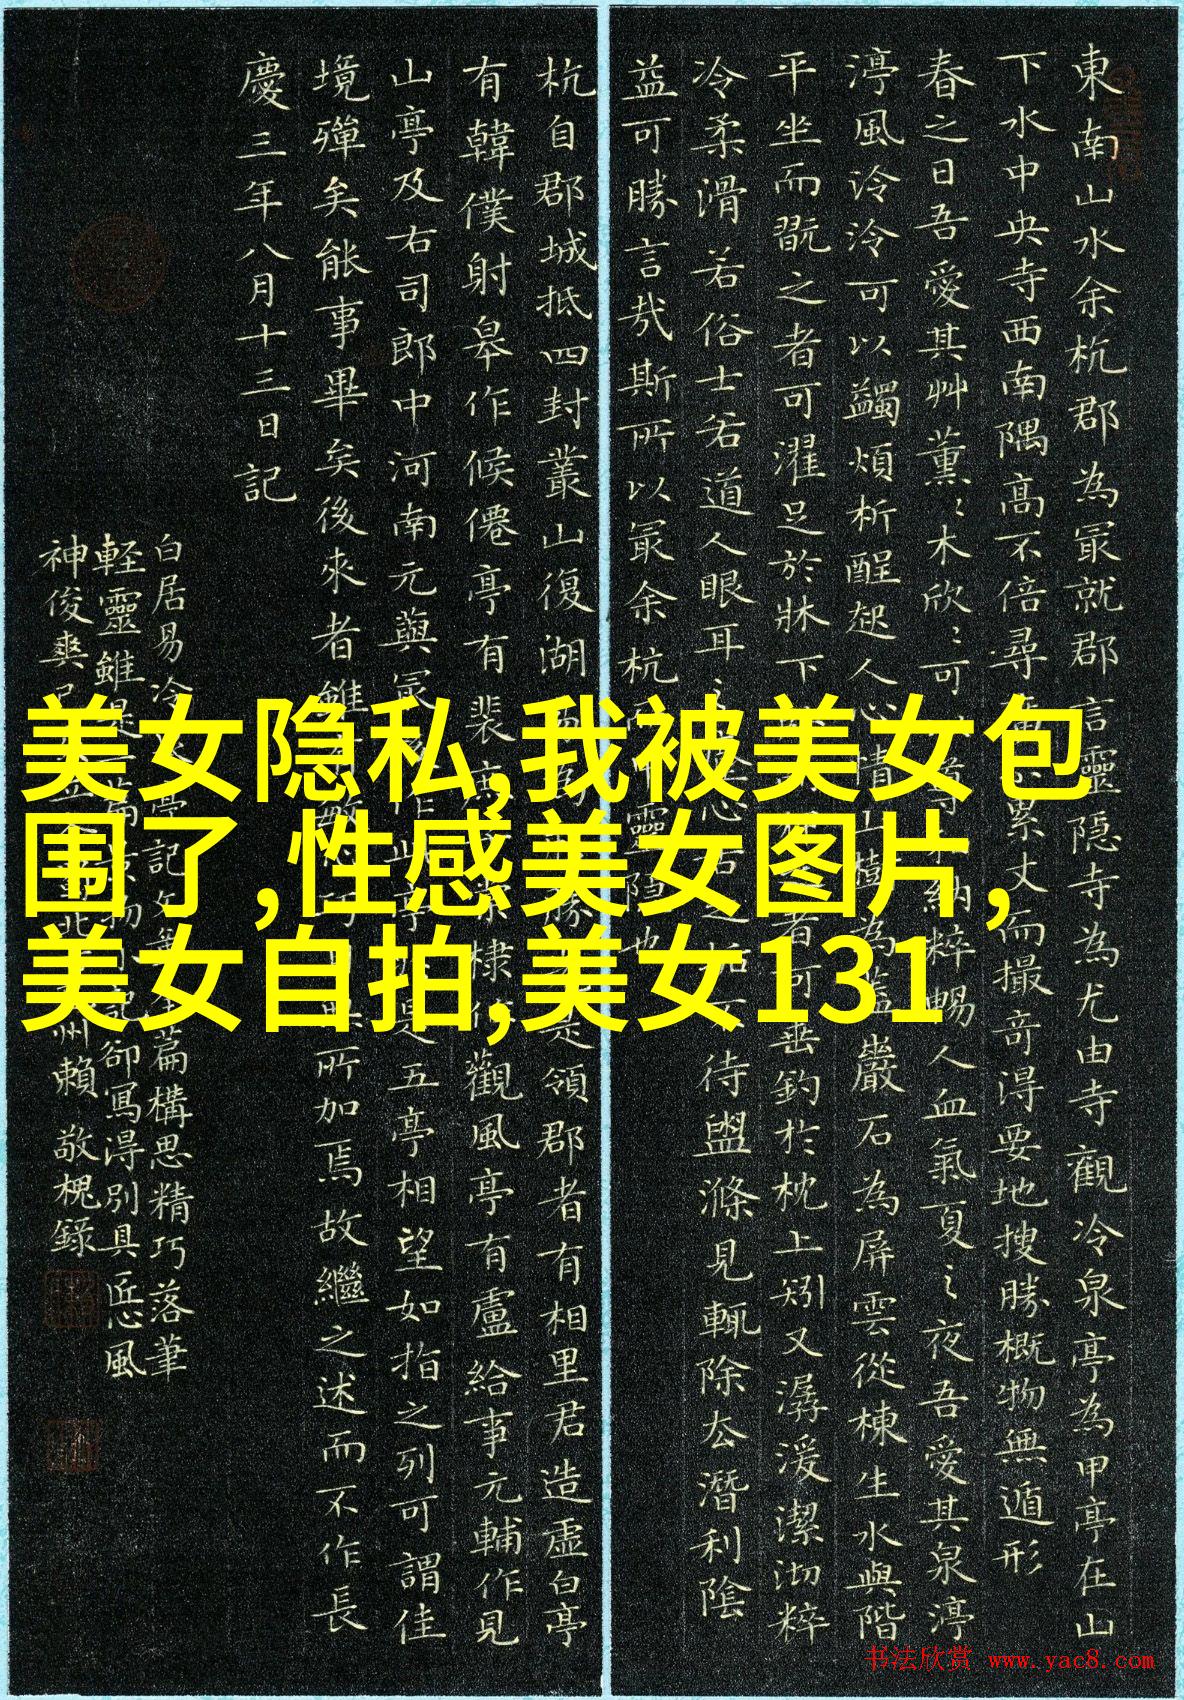 東南山水余杭郡為冣就郡言靈隐寺為尤由寺觀冷泉亭為甲亭在山
下水中央寺西南隅髙不倍尋累丈而撮竒得要地搜勝概物無遁形
春之日吾愛其艸薫〻木欣〻可納粹暢人血氣夏之夜吾愛其泉渟
渟風泠泠可以蠲煩析酲起人心情山樹為盖巖石為屏雲從棟生水與階
平坐而翫之者可濯足於牀下者可垂釣於枕上矧又潺湲潔沏粹
冷柔滑若俗士若道人眼耳之心舌之垢不待盥滌見輒除去潛利陰
益可勝言哉斯所以冣余杭靈隐也
杭自郡城抵四封叢山復湖易為勝是領郡者有相里君造虛白亭
有韓僕射皋作候僊亭有裴庶棠棣作觀風亭有盧給事元輔作見
山亭及右司郎中河南元藇冣後作此亭是五亭相望如指之列可謂佳
境殫矣能事畢矣後來者雖有敏心巧目所加焉故繼之述而不作長
慶三年八月十三日記
白居易冷泉亭記篇構思精巧落筆
輕靈雖是卻寫得別具匠心風
神俊爽州賴敬槐錄
美女隐私,我被美女包
围了,性感美女图片,
美女自拍,美女131
书法欣赏 www.yac8.com